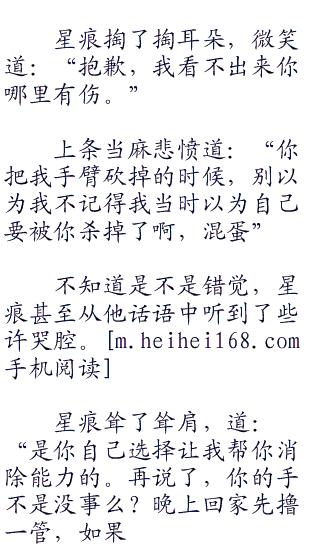 星痕掏了掏耳朵，微笑
道：“抱歉，我看不出来你
哪里有伤。”
上条当麻悲愤道：“你
把我手臂砍掉的时候，别以
为我不记得我当时以为自己
要被你杀掉了啊，混蛋”
不知道是不是错觉，星
痕甚至从他话语中听到了些
许哭腔。[m.heihei168.com
手机阅读]
星痕耸了耸肩，道：
“是你自己选择让我帮你消
除能力的。再说了，你的手
不是没事么？晚上回家先撸
一管，如果